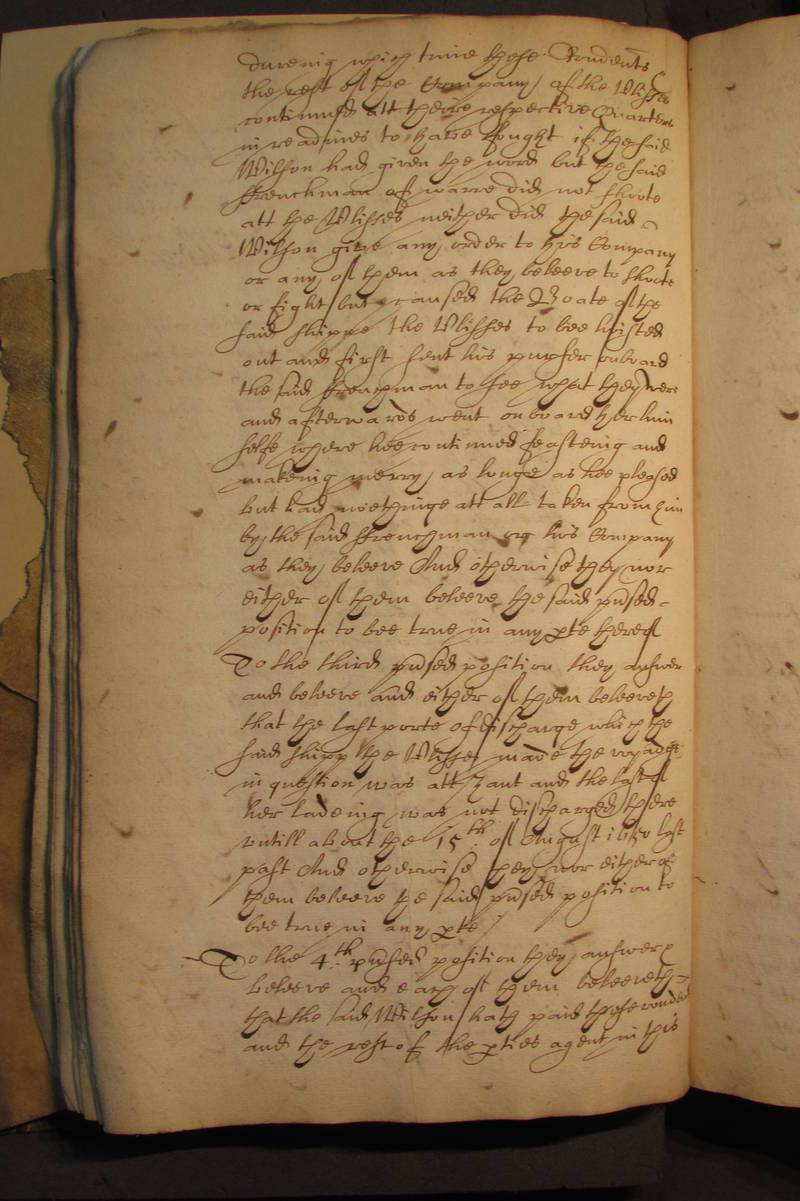 dureing which time these Rendents
the rest of the Company of the Vlisses
continued att theire respective Quarters
in readines to have fought if the said
Wilson had given the word but the said
ffrenchman of warre did not shoote
att the Vlisses neither did the said
Wilson give any order to his Company
or any of them as they beleeve to shoote
or fight but caused the Boate of the
said shippe the Vlisses to bee hoisted
out and first sent his purser onboard
the said ffrenchman to see what they were
and afterwards went onboard her him
selfe where hee continued feasteing and
makeing merry as longe as hee pleased
but had nothinge att all taken from him
by the said ffrenchman or his Company
as they beleeve And otherwise they nor
either of them beleeve the said prtsed
position to bee true in any pte thereof
To the third prtsed position they answer
and beleeve and either of them beleeveth
that the last porte of discharge which the
said shipp the Vlisses made the voyadge
in question was att Zant and the last of
her ladeing was not discharged there
vntill about the 15th of August 1650 last
past And otherwise they nor either of
them beleeve the said prtsed position to
bee true in any pte
To the 4th prtsed position they answer &
beleeve and each of them beleeveth
that the said Wilson hath paid these rendents
and the rest of the pties agent in this